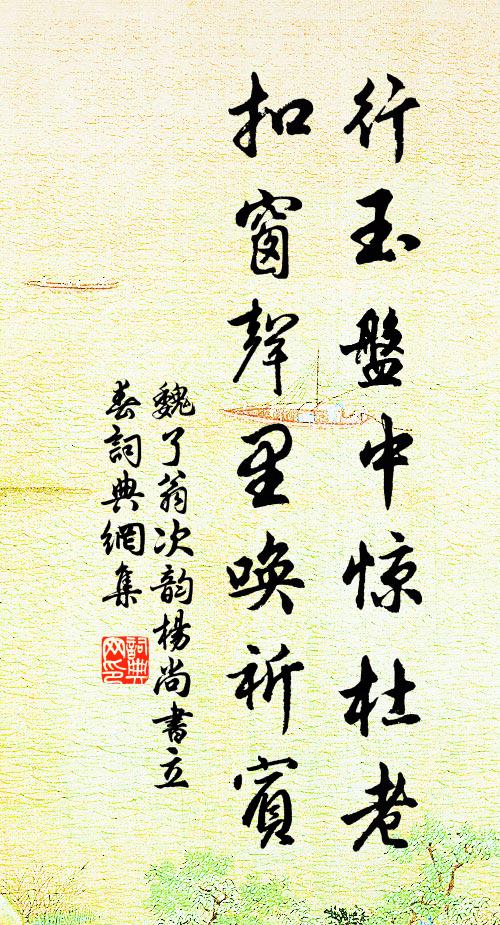 行玉盤中惊杜老
扣窗聲里唤祈賓
魏了翁次韵楊尚書立
春詞典網集
詞典網印